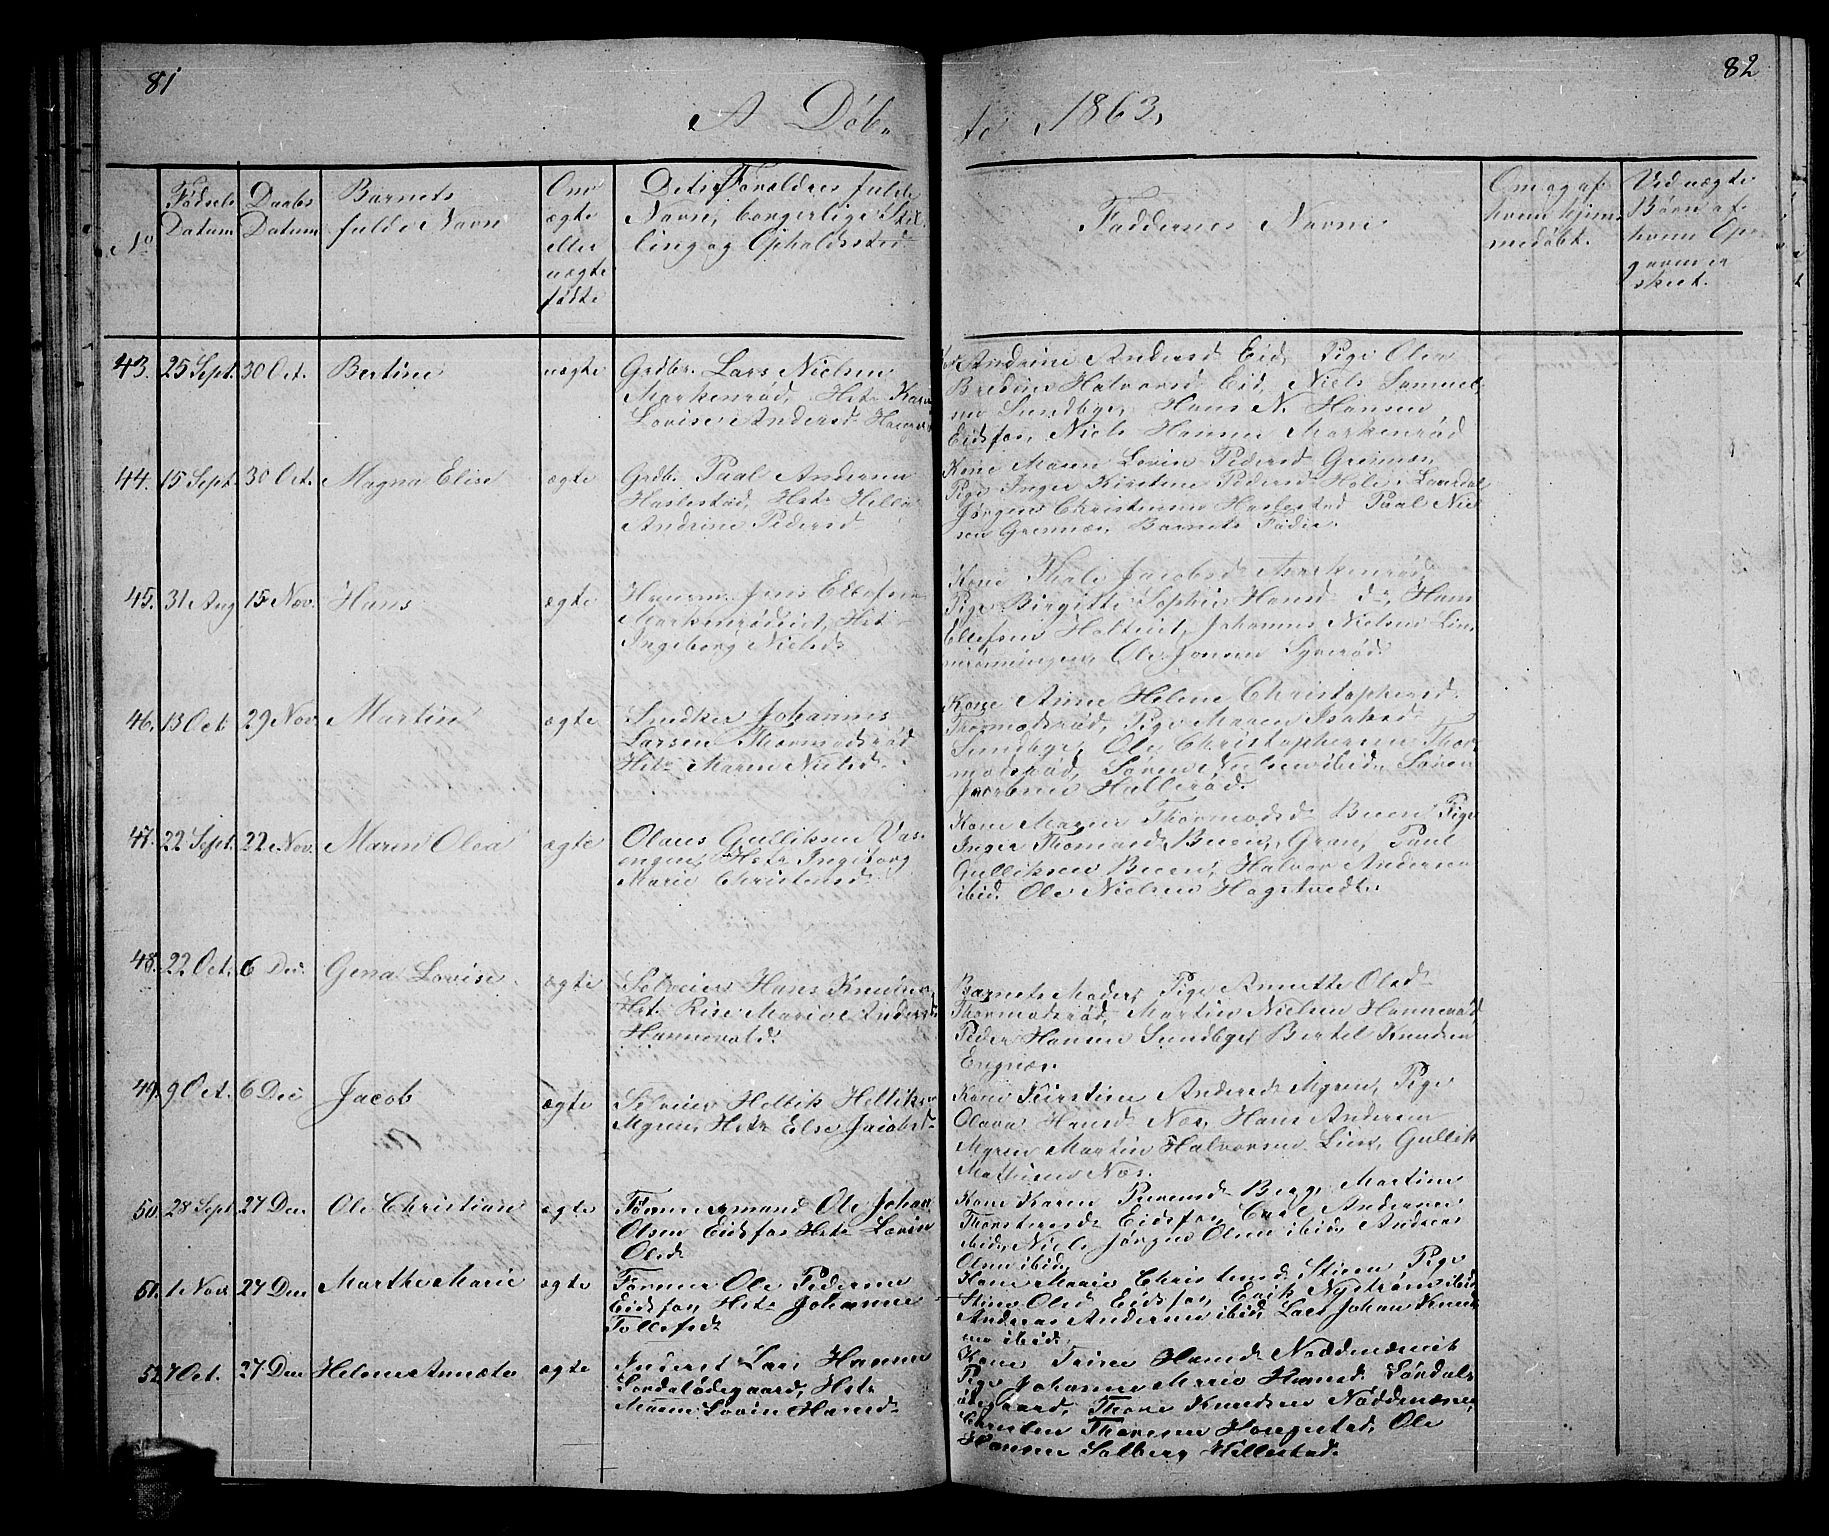 81
82
A Døb-
te 1863,
No
Fødsels Datum
Daabs Datum
Barnets fulde Navn
Om ægte eller uægte fødte
Dets Forældres fulde
Navne, borgerlige Stil-
ling og Opholdssted
Faddernes Navne
Om og af
hvem hjem-
medøbt.
Ved uægte
Børn af
hvem Op-
gaven er
skeet.
43. 25 Sept. 30 Oct. Bertine uægte Grdbr. Lars Nielsen
Markenrød, Hst.
Lovise Andersd
Andrine Andersd Eid, Pige Olea
Halvorsd Eid, Niels Samuel-
Sundbye, Hans N. Hansen
Eidsfos, Niels Hansen Markenrød
44. 15 Sept. 30 Oct. Magna Elise ægte Grdbr. Paal Andersen
Haslestad, Hst. Helle
Andrine Pedersd
Kone Maren Lovise Pedersd Grennes,
Pige Inger Kirstine Pedersd
Jørgen Christensen Haslestad Paal Niel
sen Grennes, Barnets Fader.
45. 31 Aug 15 Nov. Hans ægte Huusm. Jens Ellefsen
Markenrødeiet, Hst
Ingeborg Nielsd
Kone Thale Jacobsd Markenrød
Pige Birgitte Sophie Hansd do, Hans
Ellefsen Holteiet, Johannes Nielsen
Ole Jensen
46. 13 Oct 29 Nov. Martin ægte Snedker Johannes
Larsen Thormodsrød
Hst. Maren Nielsd.
Kone Anne Helene Christophersd
Thormodsrød, Pige Maren Isaksd
Sundbye, Ole Christophersen Thor-
modsrød, Søren Nielsen ibid, Søren
Jacobsen Hallerød.
47. 22 Sept. 22 Nov. Maren Olea ægte Olaus Gulliksen Vas-
engen, Hst. Ingeborg
Marie Christensd
Kone Maren Thormodsd Buen, Pige
Inger Thomasd Buen, Gran, Paul
Gulliksen Buen, Halvor Andersen
ibid. Ole Nielsen Hagstvedt.
48. 22 Oct. 6 Dec. Gena Lovise ægte Selveier Hans Knudsen
Hst. Marie Andersd
Hannevold
Barnets Moder, Pige Annette Olsd
Thormodsrød, Martin Nielsen
Peder Hansen Sundbye, Bertel Knudsen
Engnæs.
49. 9 Oct. 6 Dec Jacob ægte Selveier Hellik Helliksen
Myren, Hst. Else Jacobsd
Kone Kirstine Andersd Myren, Pige
Olava Hansd Næs, Hans Andersen
Myren Martin Halvorsen Lien, Gullik
Mathisen Næs.
50. 28 Sept 27 Dec. Ole Christian ægte Tømmermand Ole Johan
Olsen Eidsfos Hst. Lovise
Olsd
Kone Karen Berg, Martine
Thorstensd Eidsfos, Carl Andersen
ibid, Niels Jørgen Olsen ibid, Andreas
Olsen ibid.
51. 1 Nov. 27 Dec Marthe Marie ægte Former Ole Pedersen
Eidsfos, Hst. Johanne
Tollefsd
Kone Marie Christensd Stien, Pige
Stine Olsd Eidsfos, Erik Nystrøm ibid
Andreas Andersen ibid, Lars Johan Knud-
sen ibid.
52. 7 Oct. 27 Dec Helene Annæta ægte Inderst Lars Hansen
Sørdalsødegaard, Hst.
Maren Lovise Hansd
Kone Trine Hansd Nøddenæseiet
Pige Johanne Marie Hansd Sørdals-
ødegaard, Thore Knudsen Nøddenæseiet,
Christen Thoresen Haugestad, Ole
Hansen Solberg Hillestad.